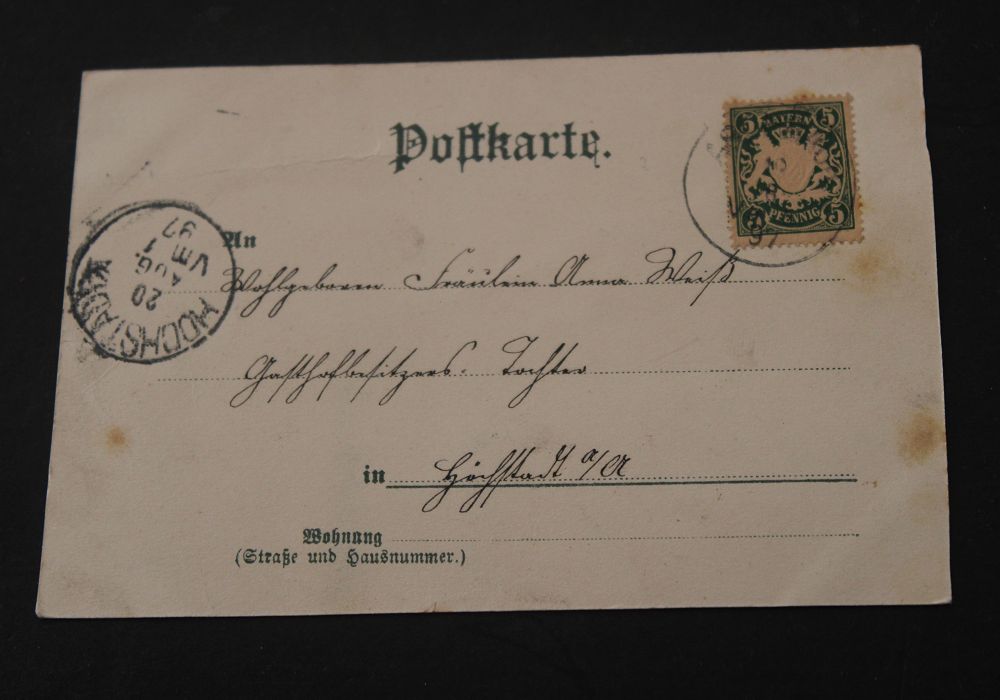 Postkarte.
5 BAYERN 5
5 PFENNIG 5
97
An
HÖCHSTADT
20
AUG.
VM 1
97
Wohlgeboren Fräulein Anna Weiß
Gasthofbesitzers-Tochter
in Höchstadt a/A
Wohnung
(Straße und Hausnummer.)